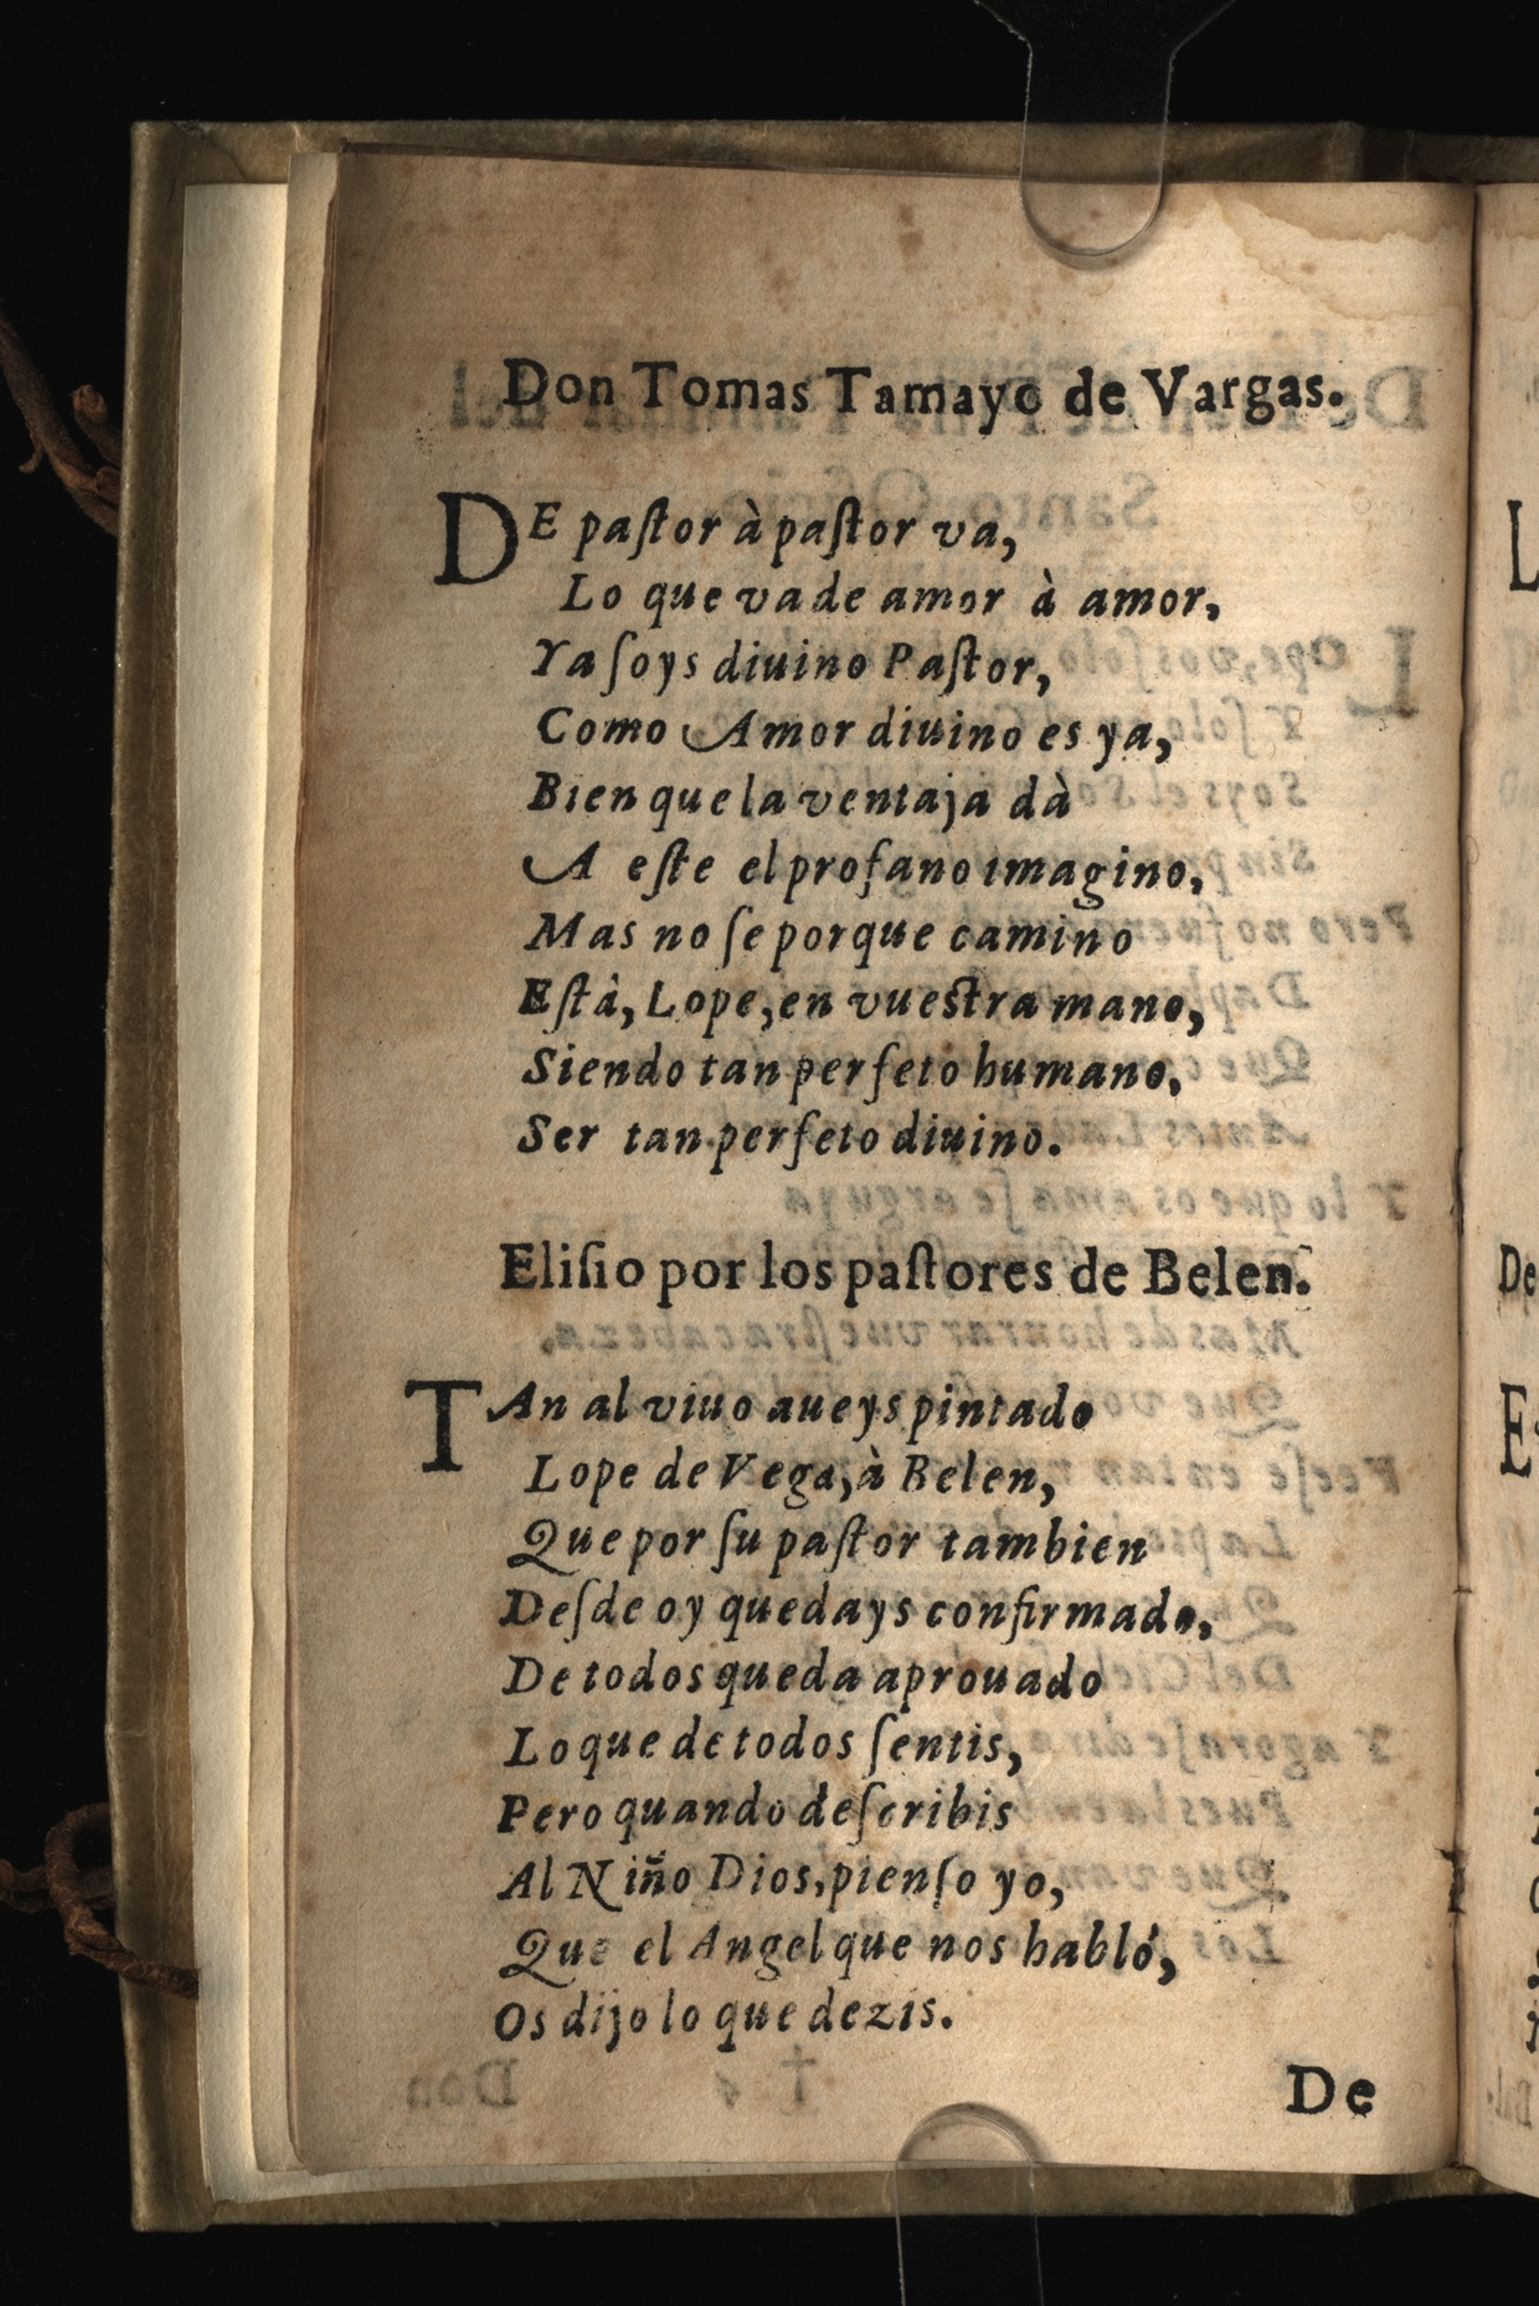 Don Tomas Tamayo de Vargas.
DE paſtor à paſtor va,
Lo que va de amor à amor,
Ya ſoys diuino Paſtor,
Como Amor diuino es ya,
Bien que la ventaja dà
A eſte el profano imagino,
Mas no ſe porque camino
Eſtà, Lope, en vueſtra mano,
Siendo tan perfeto humano,
Ser tan perfeto diuino.
Eliſio por los paſtores de Belen.
TAn al viuo aueys pintado
Lope de Vega, à Belen,
Que por ſu paſtor tambien
Deſde oy quedays confirmado,
De todos queda aprouado
Lo que de todos ſentis,
Pero quando deſcribis
Al Niño Dios, pienſo yo,
Que el Angel que nos habló,
Os dijo lo que dezis.
De